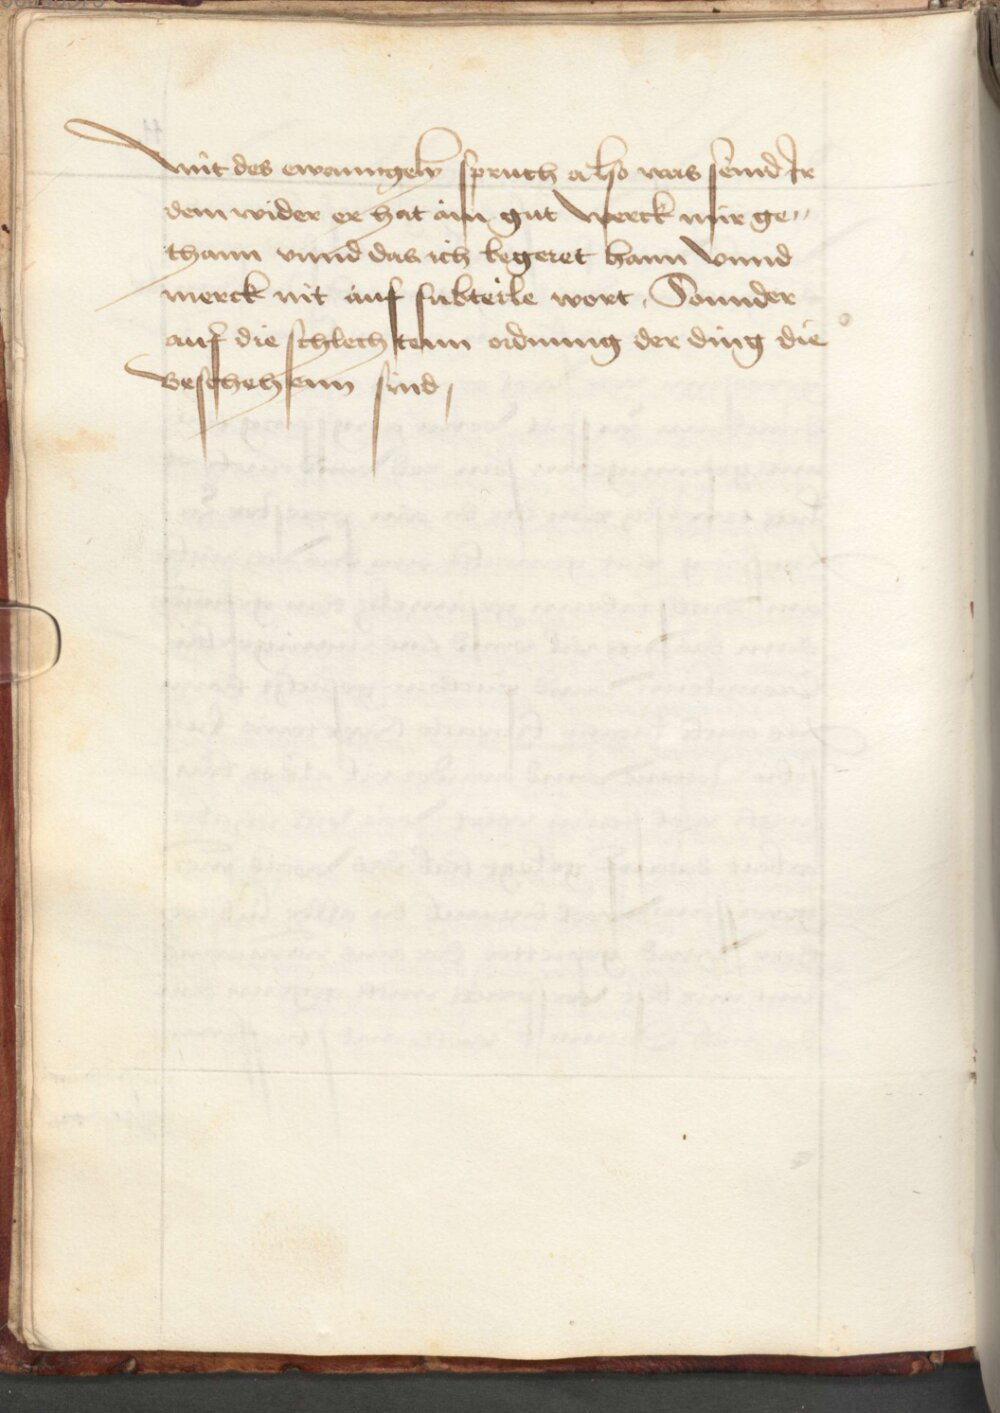 mit des ewanngely spruch also was seind Ir
dem wider er hat ain gut werck mir ge„
thann vnnd das ich begeret hann vnnd
merck nit auf subteile wort, Sonnder
auf die schlechtenn ordnung der ding die
beschehenn sind,